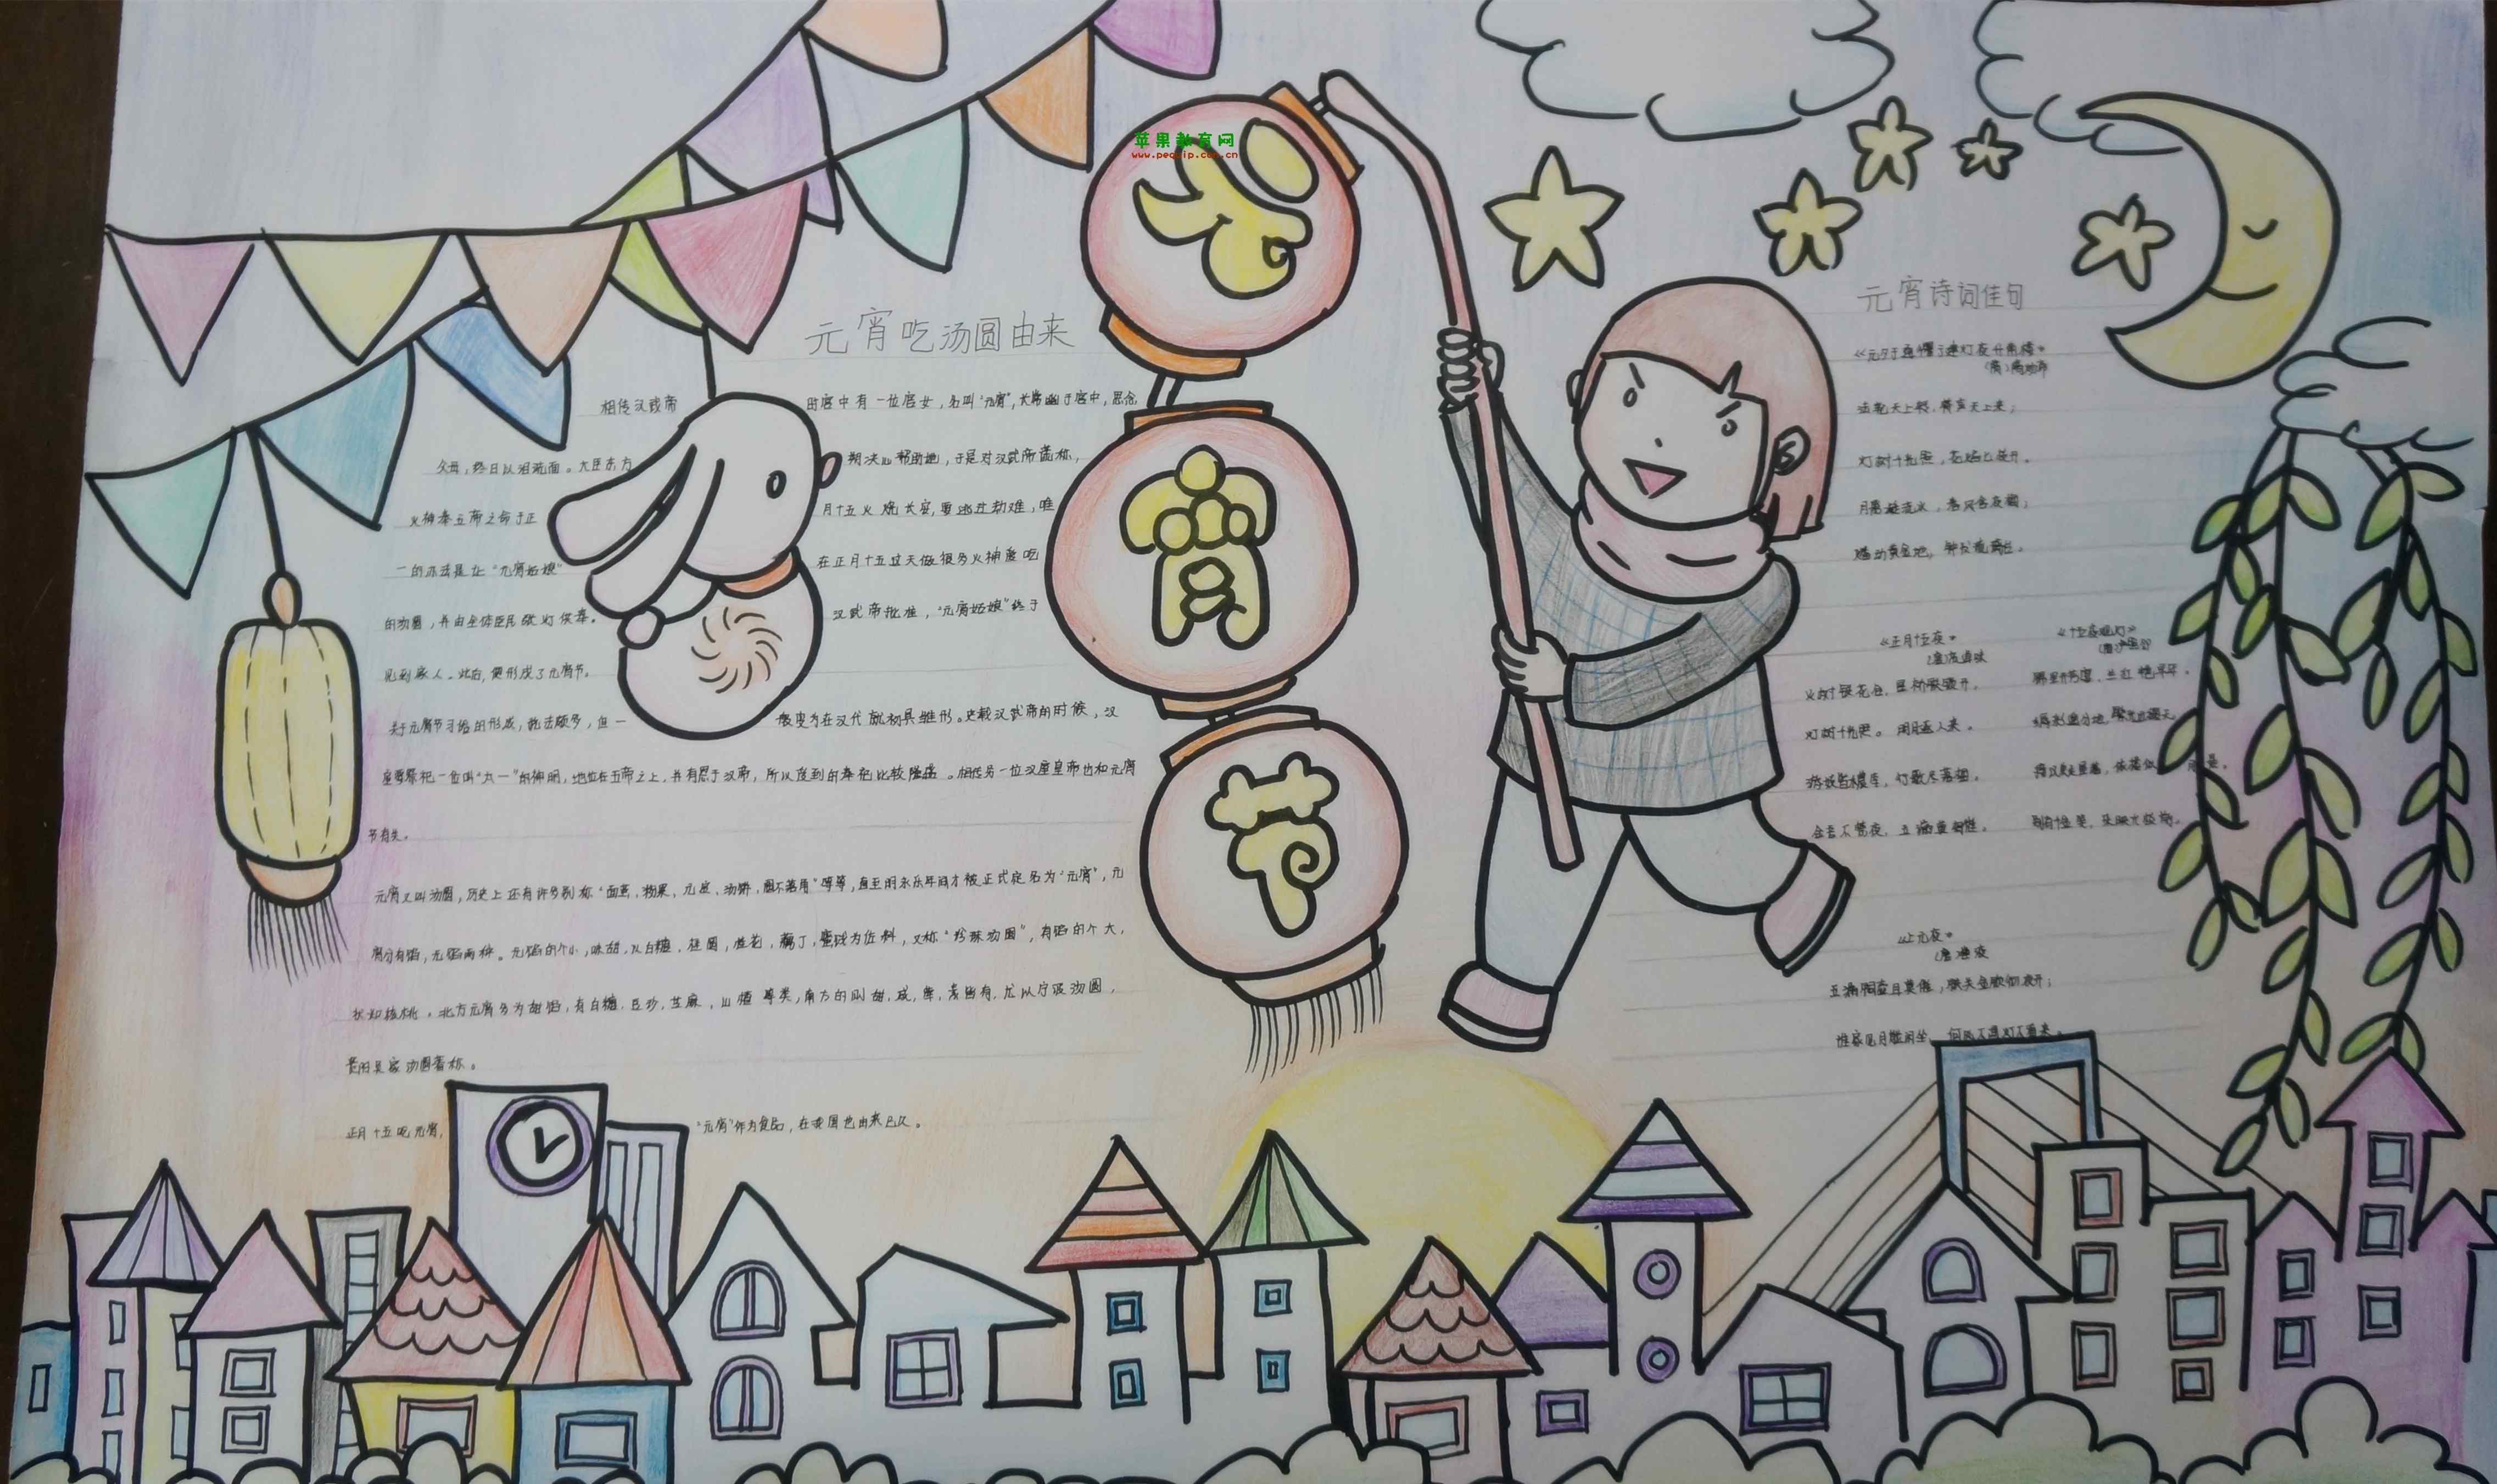 苹果教育网
元宵节
元宵吃汤圆由来
相传汉武帝时宫中有一位宫女，名叫“元宵”，长期幽于宫中，思念
父母，终日以泪洗面。大臣东方朔决心帮助她，于是对汉武帝谎称，
火神奉玉帝之命于正月十五火烧长安，要逃过劫难，唯
一的办法是让“元宵姑娘”在正月十五这天做很多火神爱吃
的汤圆，并由全体臣民张灯供奉。汉武帝批准，“元宵姑娘”终于
见到家人。此后，便形成了元宵节。
关于元宵节习俗的形成，说法颇多，但一般更为在汉代就初具雏形。史载汉武帝的时候，汉
室要祭祀一位叫“太一”的神明，地位在五帝之上，并有恩于汉帝，所以受到的奉祀比较隆盛。相传另一位汉室皇帝也和元宵
节有关。
元宵又叫汤圆，历史上还有许多别称“面茧，粉果，元宝，汤饼，圆不落角”等等，直至明永乐年间才被正式定名为“元宵”，元
宵分有馅，无馅两种。无馅的个小，味甜，以白糖，桂圆，桂花，藕丁，蜜饯为佐料，又称“珍珠汤圆”，有馅的个大，
状如核桃，北方元宵多为甜馅，有白糖，豆沙，芝麻，山楂等类，南方的则甜，咸，荤，素皆有，尤以宁波汤圆，
著称。
正月十五吃元宵，“元宵”作为食品，在我国也由来已久。
元宵诗词佳句
法轮天上转，梵声天上来；
灯树千光照，花焰七枝开。
月影疑流水，春风含夜梅；
燔动黄金地，钟发琉璃台。
《正月十五夜》
(唐)苏道味
《十五夜观灯》
火树银花合，星桥铁锁开。
灯树千光照。明月逐人来。
游妓皆秾李，行歌尽落梅。
金吾不禁夜，玉漏莫相催。
《上元夜》
(唐)崔液
玉漏铜壶且莫催，铁关金锁彻夜开；
谁家见月能闲坐，何处闻灯不看来。